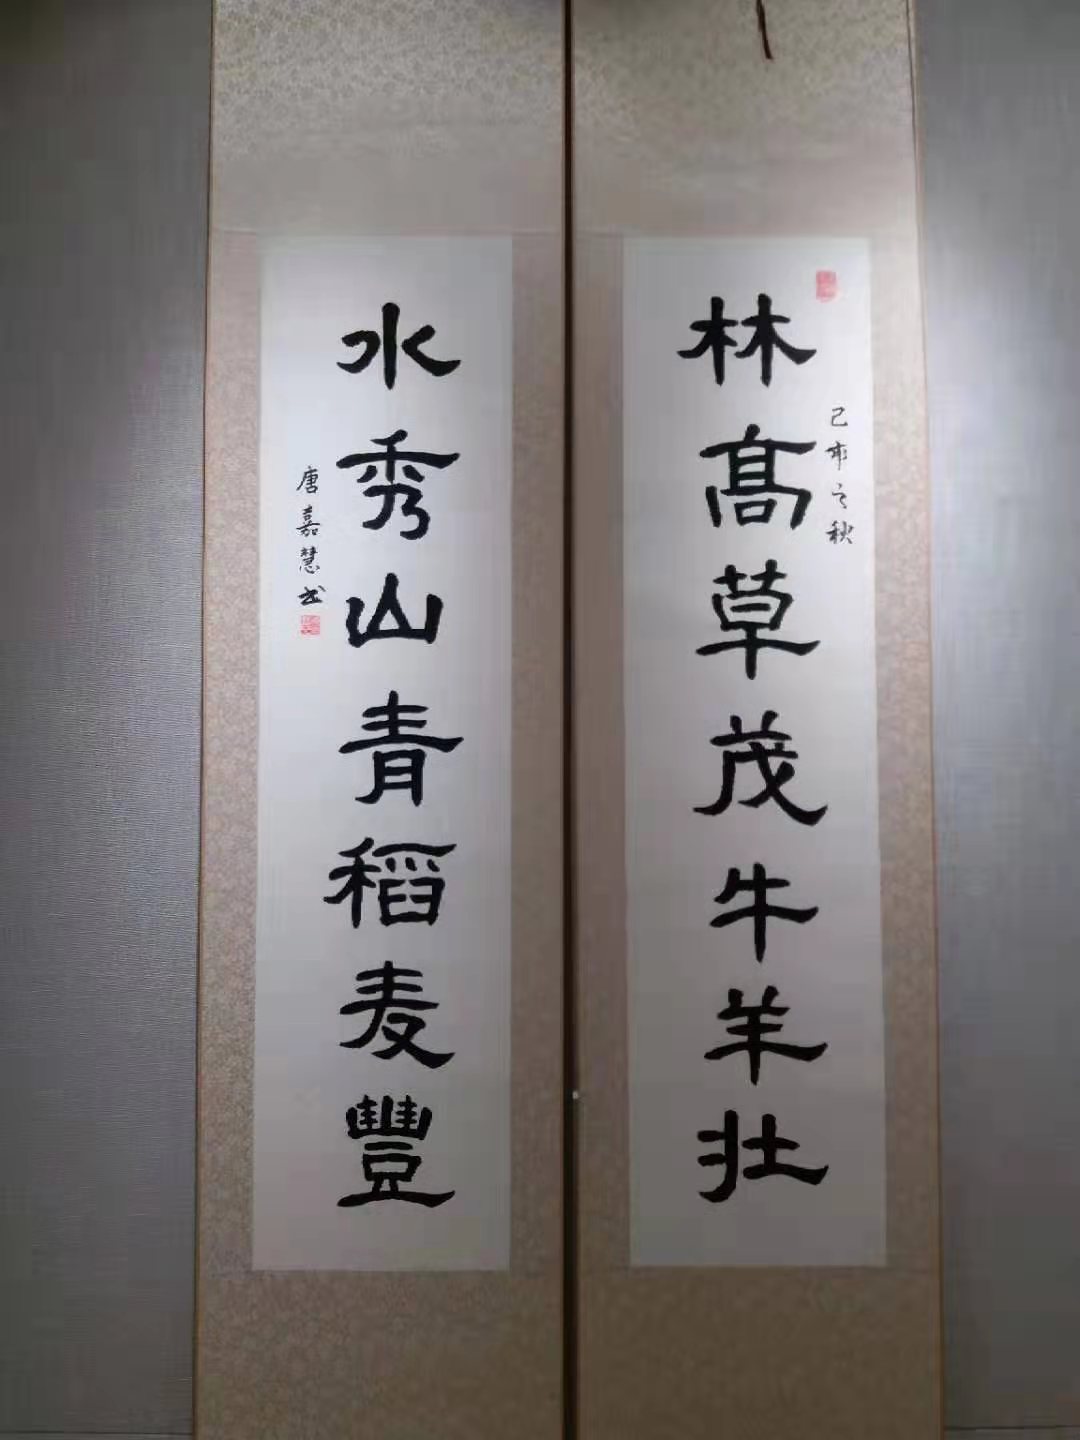 林髙草茂牛羊壯
己亥之秋
水秀山青稻麦豐
唐嘉慧书